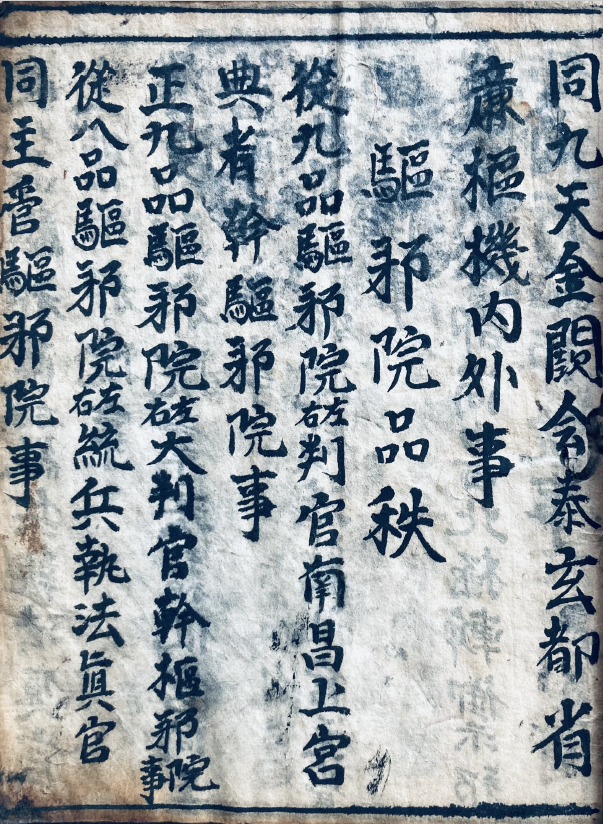 同九天金闕僉泰玄都省
兼樞機内外事
驅邪院品秩
從九品驅邪院左右判官南昌上宮
典者幹驅邪院事
正九品驅邪院左右大判官幹樞邪院事
從八品驅邪院左右統兵執法眞官
同主管驅邪院事